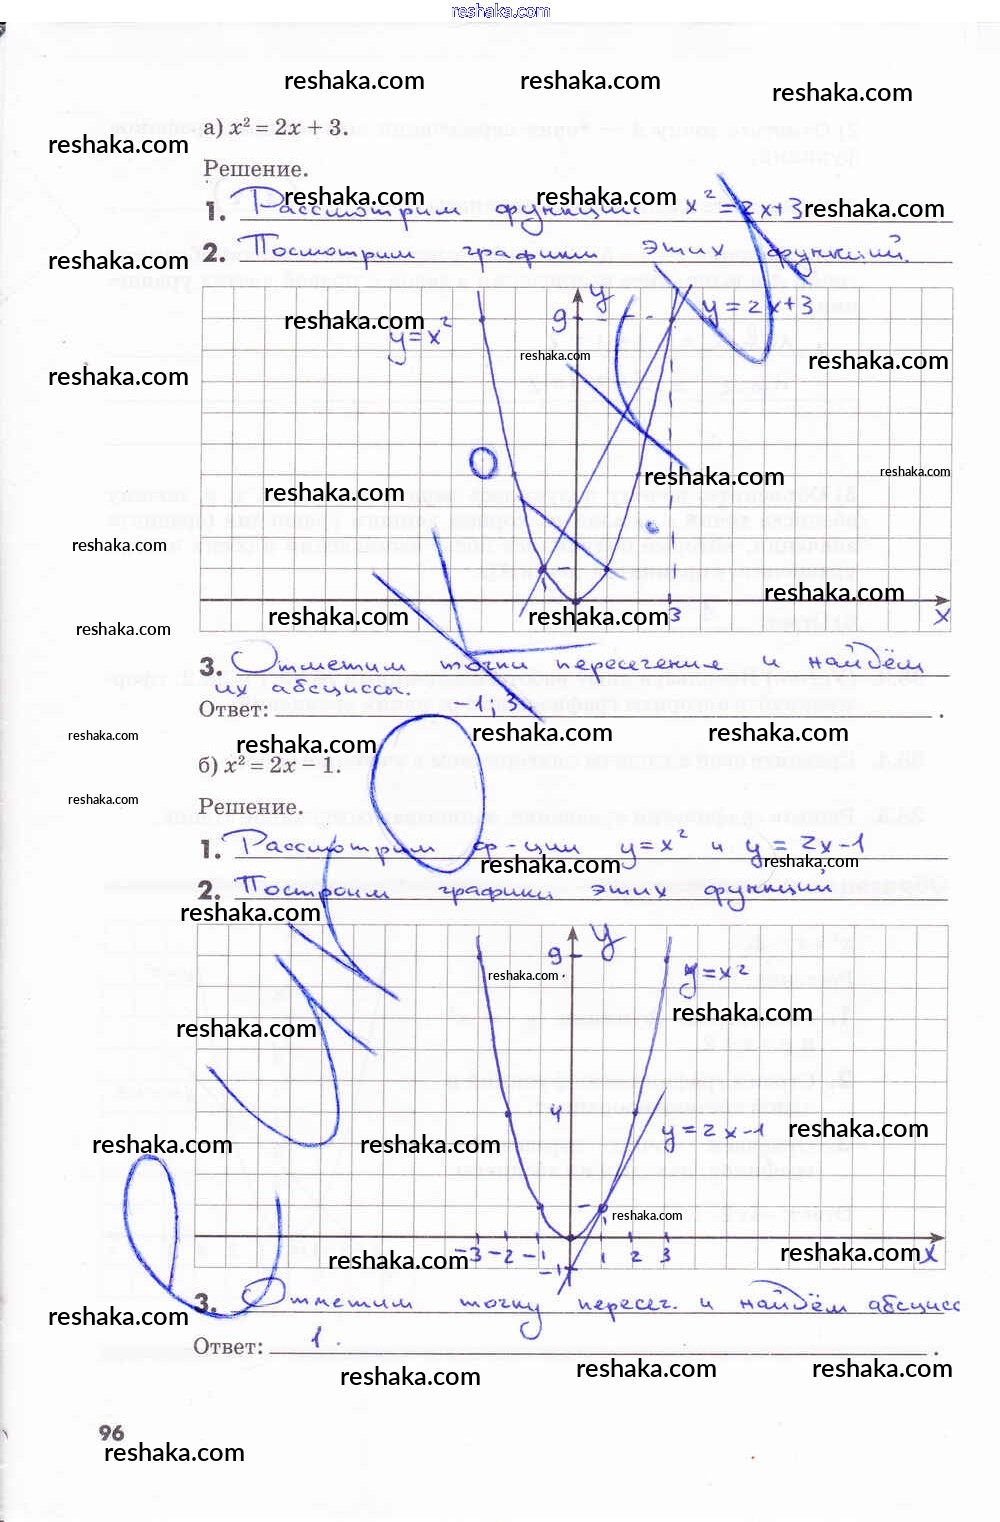 reshaka.com
reshaka.com reshaka.com reshaka.com
а) x² = 2x + 3.
reshaka.com
Решение.
reshaka.com reshaka.com
1. Рассмотрим функции x² = 2x+3 reshaka.com
2. Посмотрим графики этих функций.
reshaka.com
y
9
y = 2x+3
reshaka.com
y = x²
reshaka.com
reshaka.com
reshaka.com
reshaka.com
reshaka.com
reshaka.com
reshaka.com
reshaka.com
3
x
reshaka.com reshaka.com
reshaka.com
3. Отметим точки пересечение и найдём
их абсциссы.
Ответ: -1; 3 .
reshaka.com reshaka.com reshaka.com reshaka.com
б) x² = 2x − 1.
reshaka.com
Решение.
1. Рассмотрим ф-ции y = x² и y = 2x-1
reshaka.com reshaka.com
2. Построим графики этих функций
reshaka.com
y
9
reshaka.com
y = x²
reshaka.com
reshaka.com
4
y = 2x-1
reshaka.com
reshaka.com reshaka.com
reshaka.com
-3 -2 -1 1 2 3 x
reshaka.com reshaka.com
-1
3. Отметим точку пересег. и найдём абсцисс
reshaka.com
Ответ: 1 .
reshaka.com reshaka.com reshaka.com
96
reshaka.com